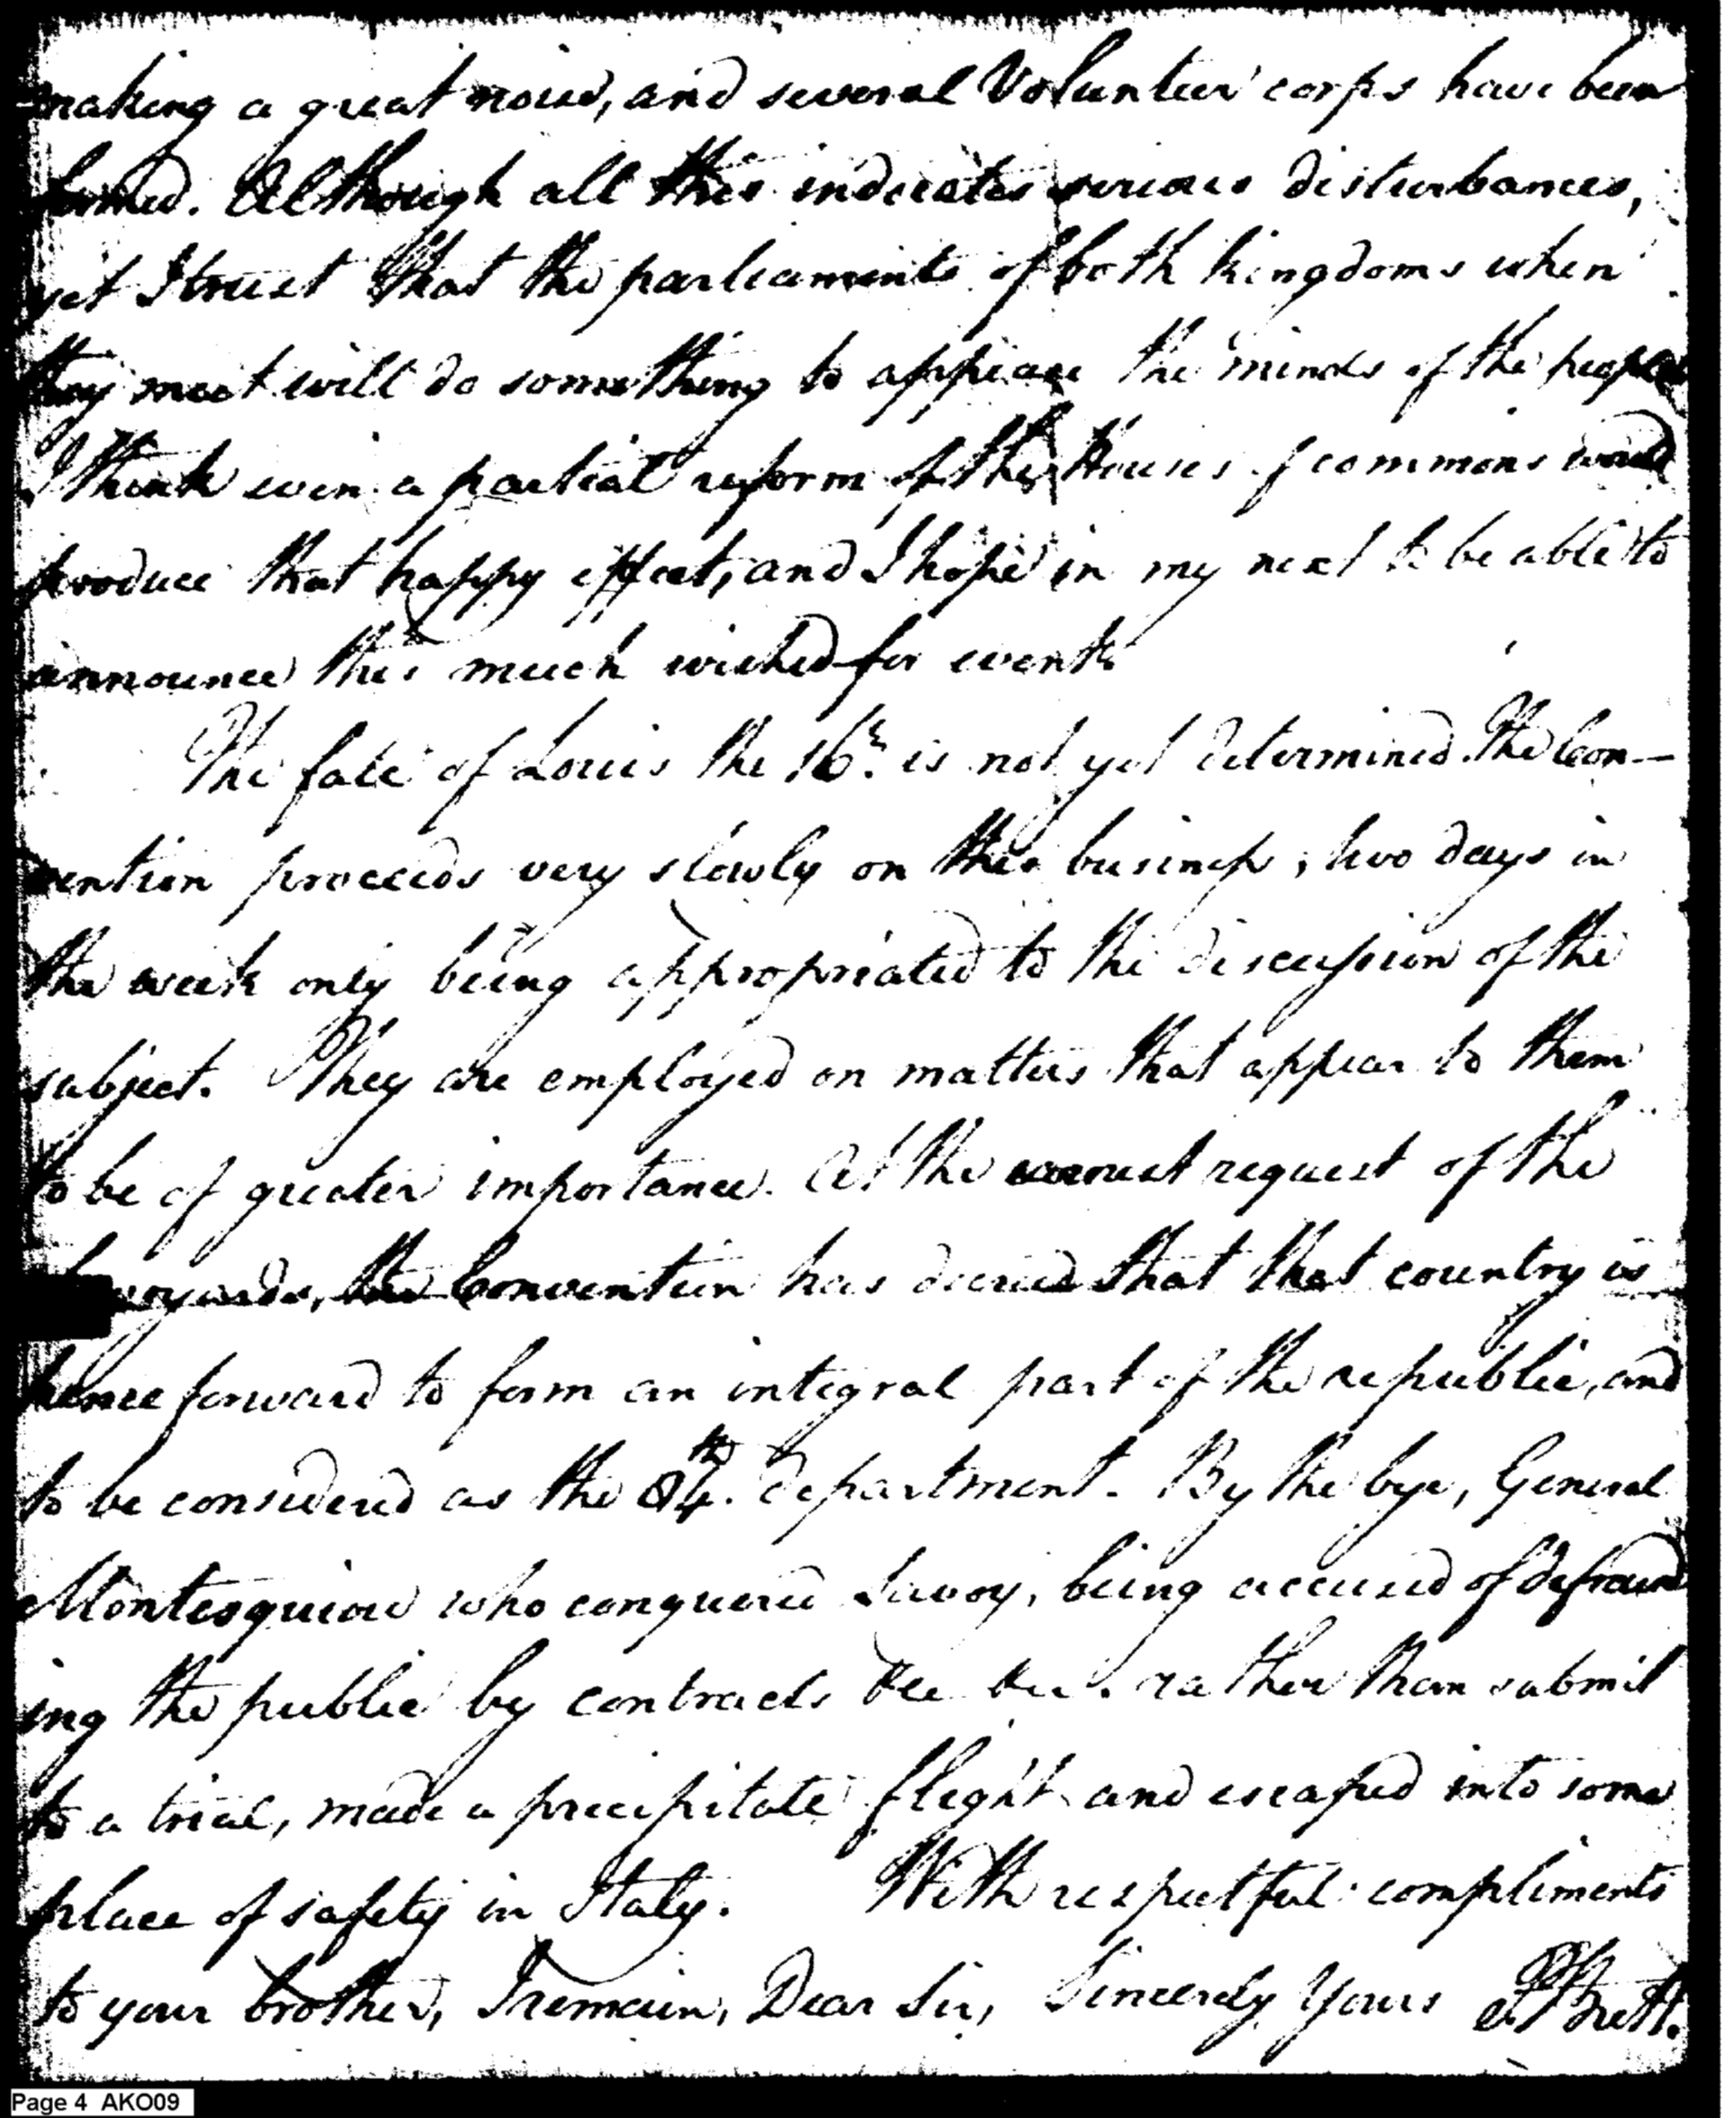 making a great noise, and several Volunteer corps have been
formed. Although all this indicates serious disturbances,
yet I trust that the parliaments of both kingdoms when
they meet will do something to appease the minds of the people
I think even a partial reform of the Houses of commons would
produce that happy effect, and I hope in my next to be able to
announce this much wished for event.
The fate of Louis the 16th. is not yet determined. The Con—
vention proceeds very slowly on this business; two days in
the week only being appropriated to the discussion of the
subject. They are employed on matters that appear to them
to be of greater importance. At the earnest request of the
the Convention has decreed that that country is
hence forward to form an integral part of the republic, and
to be considered as the 84th. department. By the bye, General
Montesquiou who conquered Savoy, being accused of defraud
ing the public by contracts &c &c. rather than submit
to a trial, made a precipitate flight and escaped into some
place of safety in Italy. With respectful compliments
to your brother, I remain, Dear Sir, Sincerely Yours
Page 4 AKO09